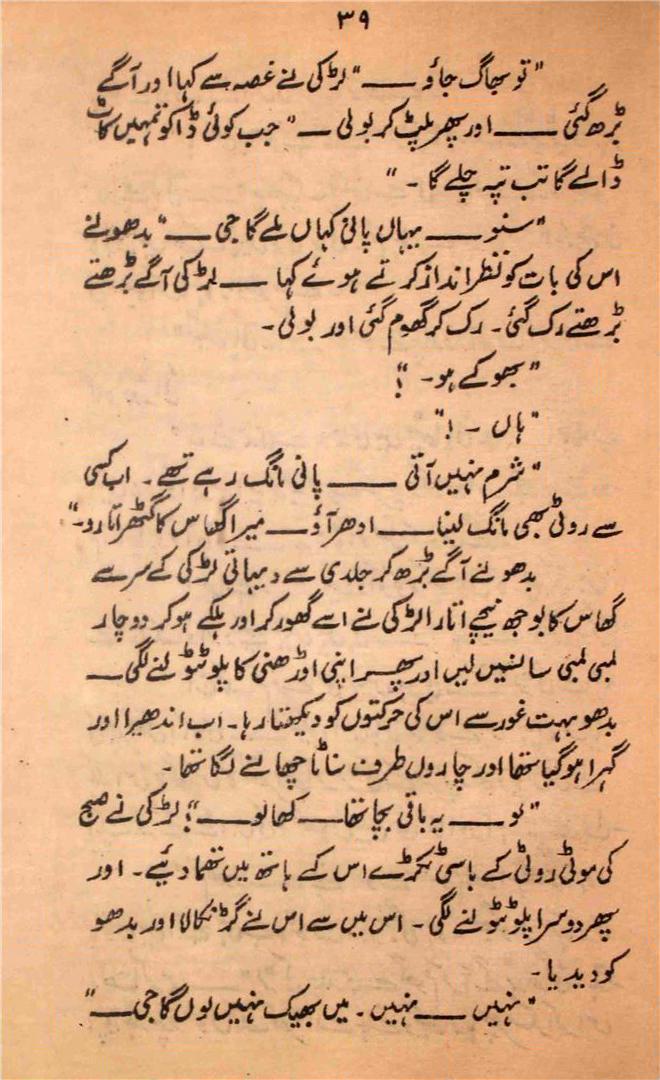 ۳۹
"تو بھاگ جاؤ ــــ" لڑکی نے غصہ سے کہا اور آگے
بڑھ گئی ــــ اور پھر پلٹ کر بولی ــ "جب کوئی ڈاکو تمہیں کاٹ
ڈالے گا تب تپہ چلے گا ۔"
"سنو ــــ یہاں پانی کہاں ملے گا جی ــــ" بدھو نے
اس کی بات کو نظر انداز کرتے ہوئے کہا ــــ لڑکی آگے بڑھتے
بڑھتے رک گئی ۔ رک کر گھوم گئی اور بولی ۔
"بھوکے ہو ۔ ؟"
"ہاں ۔ !"
"شرم نہیں آتی ــــ پانی مانگ رہے تھے ۔ اب کسی
سے روٹی بھی مانگ لینا ــــ ادھر آؤ ــــ میرا گھاس کا گٹھر اتارو ۔"
بدھو نے آگے بڑھ کر جلدی سے دیہاتی لڑکی کے سر سے
گھاس کا بوجھ نیچے اتارا لڑکی نے اسے گھور کر اور ہلکے ہو کر دو چار
لمبی لمبی سانسیں لیں اور پھر اپنی اوڑھنی کا پلو ٹٹولنے لگی ــــ
بدھو بہت غور سے اس کی حرکتوں کو دیکھتا رہا ۔ اب اندھیرا اور
گہرا ہو گیا تھا اور چاروں طرف سناٹا چھانے لگا تھا ۔
"لو ــــ یہ باقی بچا تھا ــــ کھا لو ــــ" لڑکی نے صبح
کی موٹی روٹی کے باسی ٹکڑے اس کے ہاتھ میں تھما دیئے ۔ اور
پھر دوسرا پلو ٹٹولنے لگی ۔ اس میں سے اس نے گڑ نکالا اور بدھو
کو دیدیا ۔
"نہیں ــــ نہیں ۔ میں بھیک نہیں لوں گا جی ــــ"